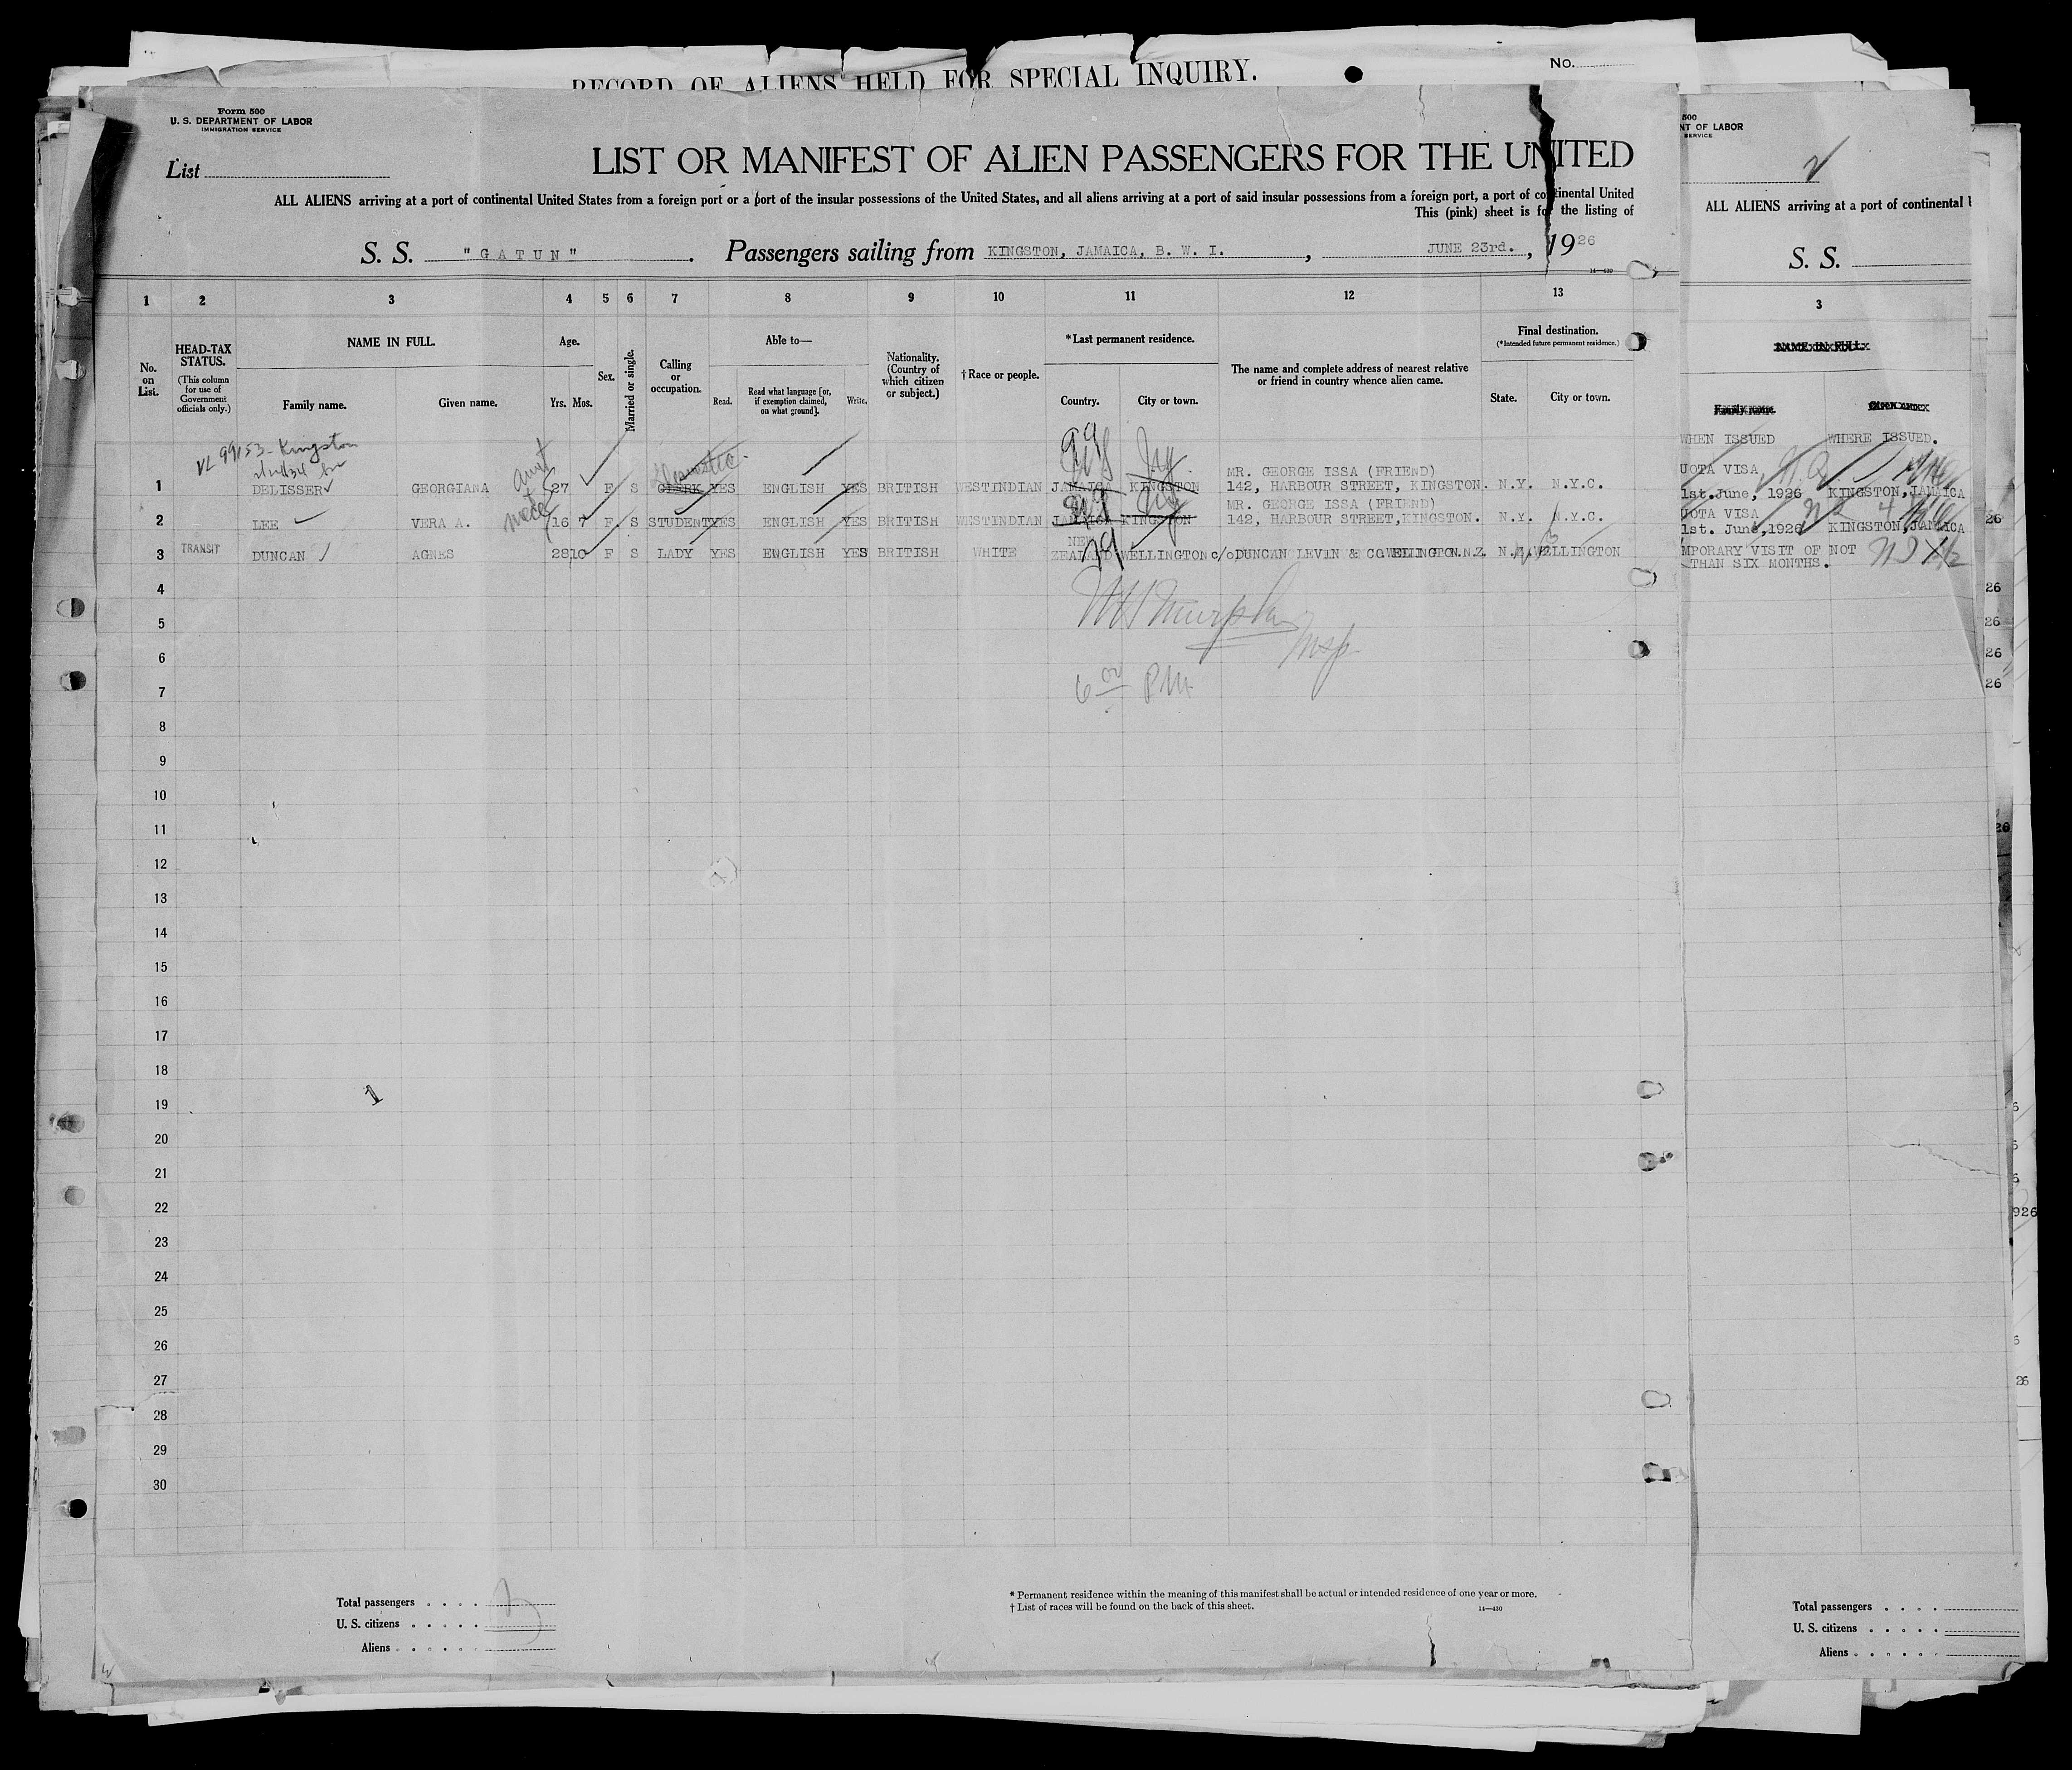 RECORD OF ALIENS HELD FOR SPECIAL INQUIRY.
No.
Form 500
U. S. DEPARTMENT OF LABOR
IMMIGRATION SERVICE
List
LIST OR MANIFEST OF ALIEN PASSENGERS FOR THE UNITED
ALL ALIENS arriving at a port of continental United States from a foreign port or a port of the insular possessions of the United States, and all aliens arriving at a port of said insular possessions from a foreign port, a port of continental United
This (pink) sheet is for the listing of
S. S. "GATUN". Passengers sailing from KINGSTON, JAMAICA, B. W. I. , JUNE 23rd. , 1926
14—430
1 2 3 4 5 6 7 8 9 10 11 12 13
No. on List.
HEAD-TAX STATUS.
(This column for use of Government officials only.)
NAME IN FULL.
Family name. Given name.
Age.
Yrs. Mos.
Sex.
Married or single.
Calling or occupation.
Able to—
Read. Read what language [or, if exemption claimed, on what ground]. Write.
Nationality. (Country of which citizen or subject.)
†Race or people.
*Last permanent residence.
Country. City or town.
The name and complete address of nearest relative or friend in country whence alien came.
Final destination.
(*Intended future permanent residence.)
State. City or town.
VL 99153 - Kingston
Aunt
Domestic
MR. GEORGE ISSA (FRIEND)
1 DELISSER GEORGIANA 27 F S CLERK YES ENGLISH YES BRITISH WESTINDIAN JAMAICA KINGSTON 142, HARBOUR STREET, KINGSTON. N.Y. N.Y.C.
MR. GEORGE ISSA (FRIEND)
2 LEE VERA A. 16 7 F S STUDENT YES ENGLISH YES BRITISH WESTINDIAN JAMAICA KINGSTON 142, HARBOUR STREET,KINGSTON. N.Y. N.Y.C.
Niece
3 TRANSIT DUNCAN AGNES 28 10 F S LADY YES ENGLISH YES BRITISH WHITE NEW ZEALAND WELLINGTON c/o DUNCAN LEVIN & CO WELLINGTON.N.Z. N.Z. WELLINGTON
4
5
6
7
8
9
10
11
12
13
14
15
16
17
18
19
20
21
22
23
24
25
26
27
28
29
30
Murphy
Insp
6 00 P.M.
1
Total passengers
U. S. citizens
Aliens
* Permanent residence within the meaning of this manifest shall be actual or intended residence of one year or more.
† List of races will be found on the back of this sheet.
14—430
500
NT OF LABOR
SERVICE
ALL ALIENS arriving at a port of continental
S. S.
3
NAME IN FULL.
Family name.
WHEN ISSUED WHERE ISSUED.
UOTA VISA
1st.June, 1926 KINGSTON,JAMAICA
UOTA VISA
1st. June,1926 KINGSTON,JAMAICA
MPORARY VISIT OF NOT
THAN SIX MONTHS.
26
26
26
26
26
26
926
26
Total passengers
U. S. citizens
Aliens